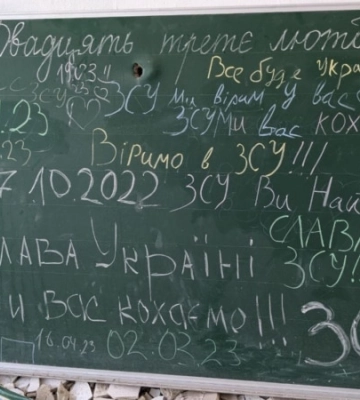 Двадцять третє люто
1903!! Все буде Укра
ЗСУ ЗСУ ми вірим у вас
.23 ЗСУ Ми вас кох
.23 Віримо в ЗСУ!!!
7.10.2022 ЗСУ Ви Най
СЛАВ
ЛАВА Україні ЗСУ!
и вас кохаємо!!! ЗС
16.04.23 02.03.23